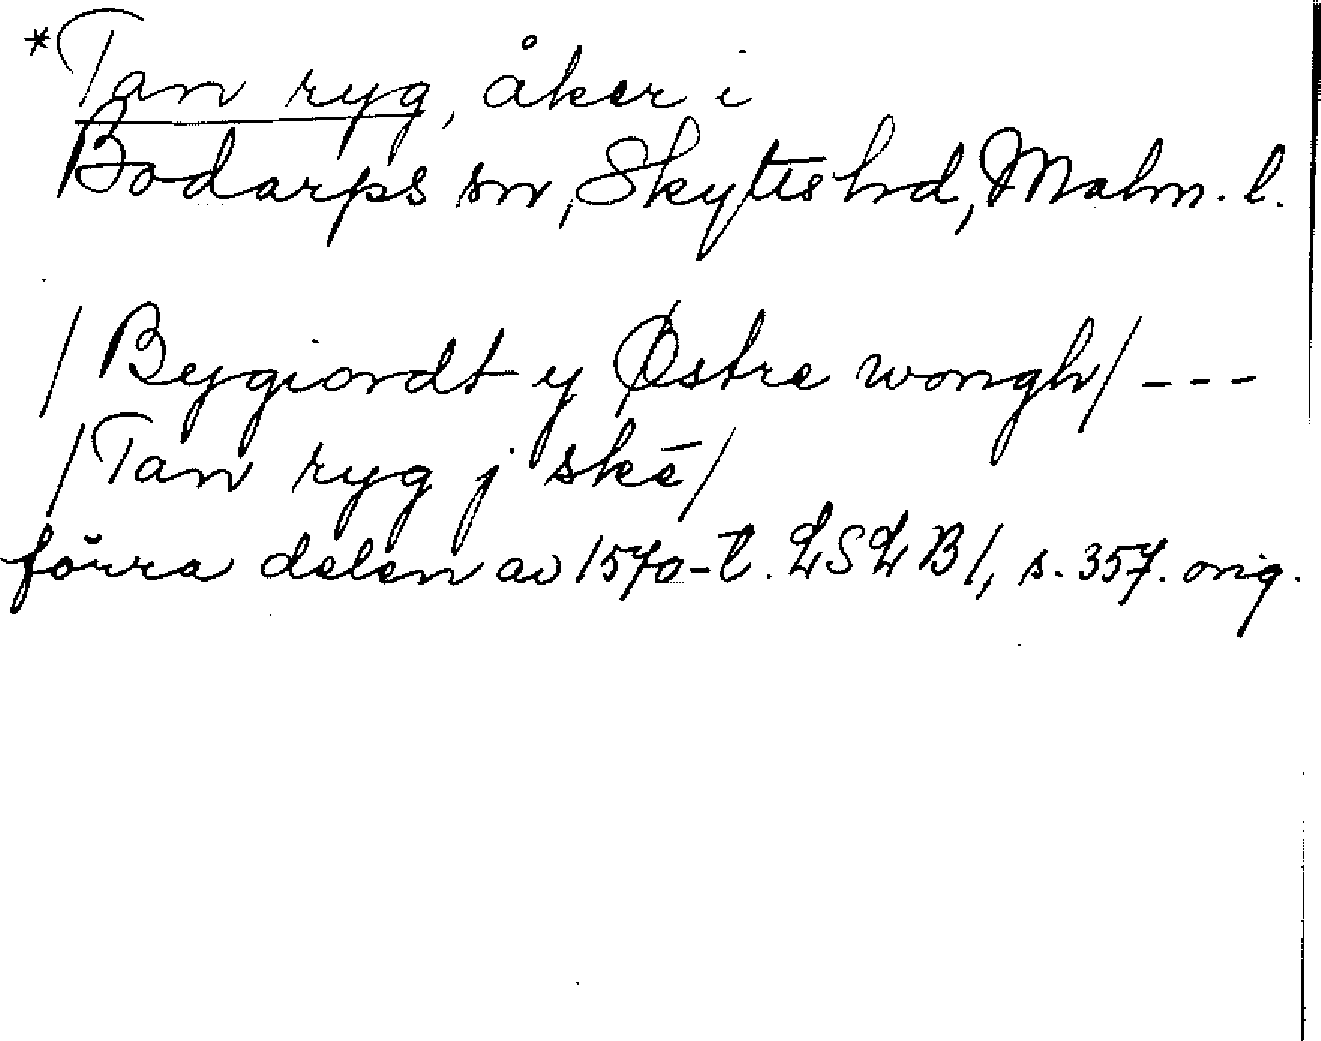 *Tan ryg, åker i
Bodarps sn, Skytts hd, Malm. l.
/Bygiordt y Østre wongh/ ---
/Tan ryg j skē/
förra delen av 1570-t. LSLB1, s. 357. orig.